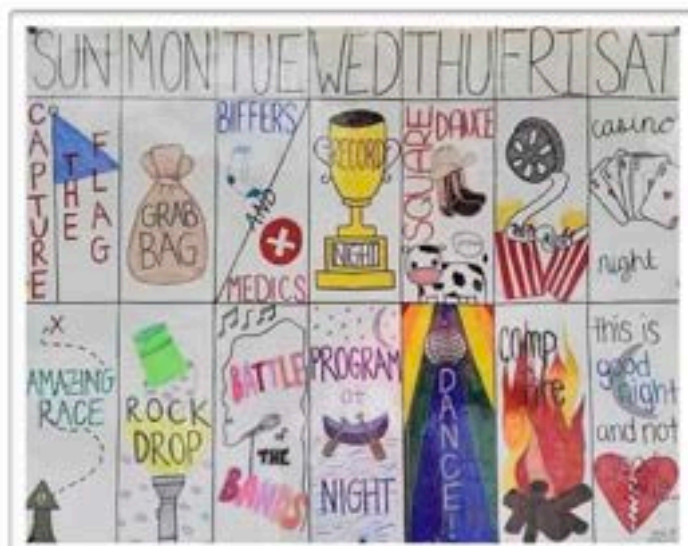 SUN MON TUE WED THU FRI SAT
CAPTURE
THE
FLAG
GRAB
BAG
BIFFERS
AND
MEDICS
RECORD
NIGHT
SQUARE
DANCE
casino
night
X
AMAZING
RACE
ROCK
DROP
BATTLE
of
THE
BANDS!
PROGRAM
at
NIGHT
DANCE!
camp
fire
this is
good
night
and not